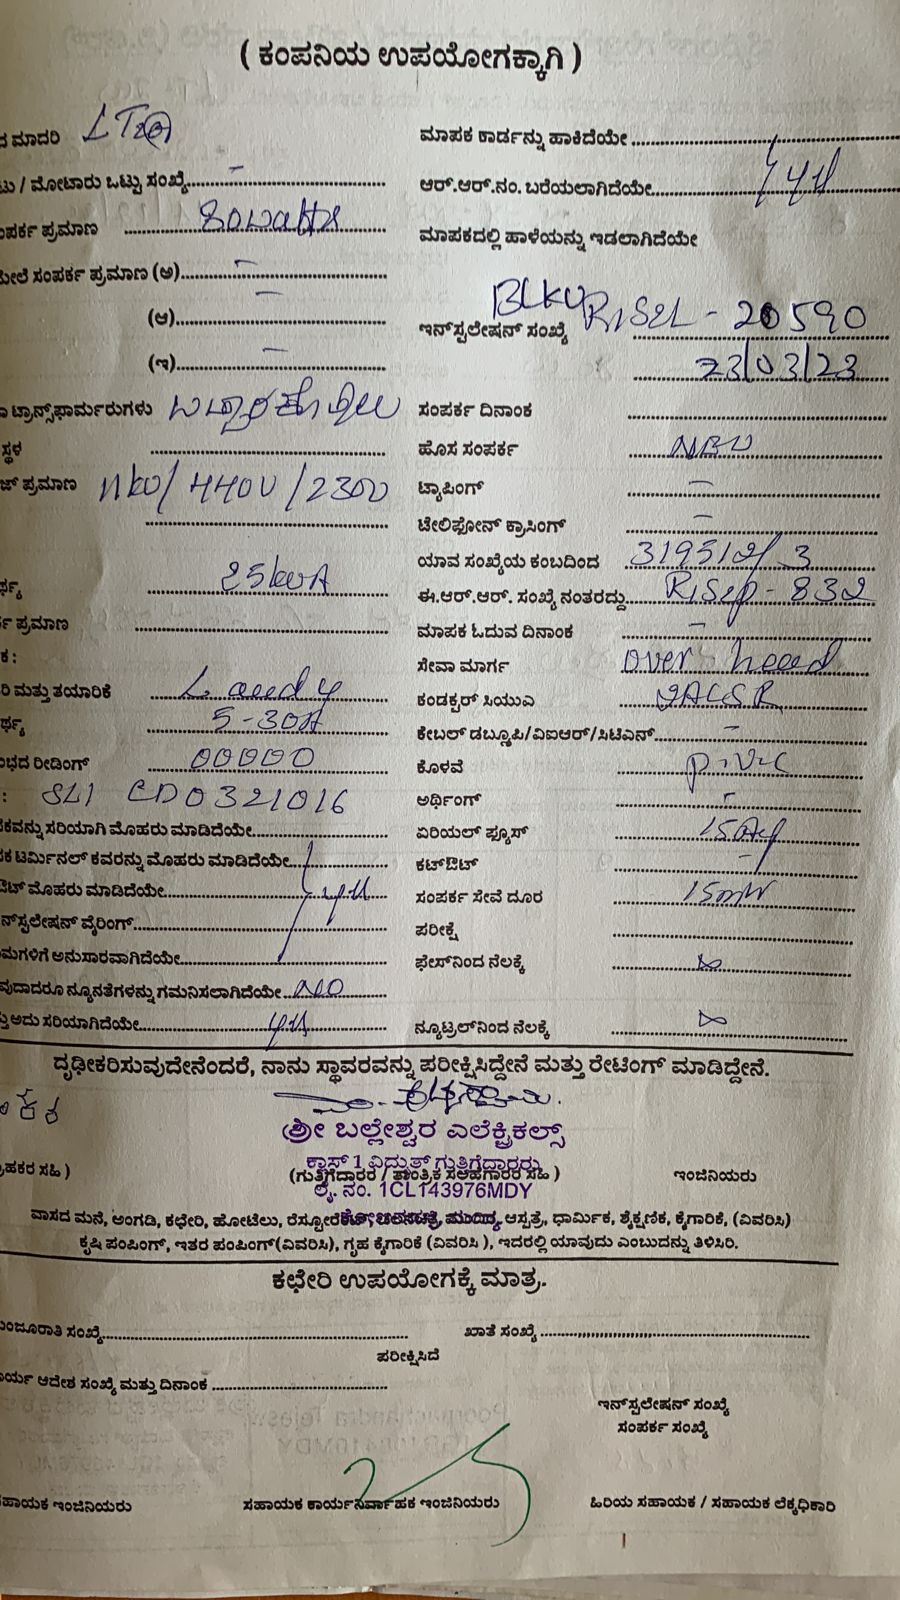 ( ಕಂಪನಿಯ ಉಪಯೋಗಕ್ಕಾಗಿ )
ದ ಮಾದರಿ LT2(a)
ಮಾಪಕ ಕಾರ್ಡನ್ನು ಹಾಕಿದೆಯೇ
ಟು / ಮೋಟಾರು ಒಟ್ಟು ಸಂಖ್ಯೆ -
ಆರ್.ಆರ್.ನಂ. ಬರೆಯಲಾಗಿದೆಯೇ
ಂಪರ್ಕ ಪ್ರಮಾಣ 80watts
ಮಾಪಕದಲ್ಲಿ ಹಾಳೆಯನ್ನು ಇಡಲಾಗಿದೆಯೇ
ಮೇಲೆ ಸಂಪರ್ಕ ಪ್ರಮಾಣ (ಅ) -
(ಆ) -
ಇನ್‌ಸ್ಟಲೇಷನ್ ಸಂಖ್ಯೆ - 20590
(ಇ) -
23/03/23
ಟ್ರಾನ್ಸ್‌ಫಾರ್ಮರುಗಳು
ಸಂಪರ್ಕ ದಿನಾಂಕ
ಸ್ಥಳ
ಹೊಸ ಸಂಪರ್ಕ
ಜ್ ಪ್ರಮಾಣ 11kv/440v/230v
ಟ್ಯಾಪಿಂಗ್ -
ಟೇಲಿಫೋನ್ ಕ್ರಾಸಿಂಗ್ -
ಯಾವ ಸಂಖ್ಯೆಯ ಕಂಬದಿಂದ
ರ್ಥ್ಯ 25kvA
ಈ.ಆರ್.ಆರ್. ಸಂಖ್ಯೆ ನಂತರದ್ದು
ರ್ಕ ಪ್ರಮಾಣ
ಮಾಪಕ ಓದುವ ದಿನಾಂಕ -
ಕ :
ಸೇವಾ ಮಾರ್ಗ over head
ರಿ ಮತ್ತು ತಯಾರಿಕೆ
ಕಂಡಕ್ಟರ್ ಸಿಯುವಿ
ರ್ಥ್ಯ 5-30A
ಕೇಬಲ್ ಡಬ್ಲ್ಯೂಪಿ/ವಿಐಆರ್/ಸಿಟಿಎನ್ -
ಂಭದ ರೀಡಿಂಗ್ 00000
ಕೊಳವೆ P.V.C
: SL1 CD0321016
ಅರ್ಥಿಂಗ್ -
ಪಕವನ್ನು ಸರಿಯಾಗಿ ಮೊಹರು ಮಾಡಿದೆಯೇ
ಏರಿಯಲ್ ಫ್ಯೂಸ್
ಪಕ ಟರ್ಮಿನಲ್ ಕವರನ್ನು ಮೊಹರು ಮಾಡಿದೆಯೇ
ಕಟ್‌ಔಟ್ -
ಔಟ್ ಮೊಹರು ಮಾಡಿದೆಯೇ
ಸಂಪರ್ಕ ಸೇವೆ ದೂರ
ನ್‌ಸ್ಟಲೇಷನ್ ವೈರಿಂಗ್
ಪರೀಕ್ಷೆ
ಮಗಳಿಗೆ ಅನುಸಾರವಾಗಿದೆಯೇ
ಫೇಸ್‌ನಿಂದ ನೆಲಕ್ಕೆ ∞
ವುದಾದರೂ ನ್ಯೂನತೆಗಳನ್ನು ಗಮನಿಸಲಾಗಿದೆಯೇ NO
ತ್ತು ಅದು ಸರಿಯಾಗಿದೆಯೇ
ನ್ಯೂಟ್ರಲ್‌ನಿಂದ ನೆಲಕ್ಕೆ ∞
ದೃಢೀಕರಿಸುವುದೇನೆಂದರೆ, ನಾನು ಸ್ಥಾವರವನ್ನು ಪರೀಕ್ಷಿಸಿದ್ದೇನೆ ಮತ್ತು ರೇಟಿಂಗ್ ಮಾಡಿದ್ದೇನೆ.
ಶ್ರೀ ಬಲ್ಲೇಶ್ವರ ಎಲೆಕ್ಟ್ರಿಕಲ್ಸ್
ಕ್ಲಾಸ್ 1 ವಿದ್ಯುತ್ ಗುತ್ತಿಗೆದಾರರು
್ರಾಹಕರ ಸಹಿ )
(ಗುತ್ತಿಗೆದಾರರ / ತಾಂತ್ರಿಕ ಸಲಹೆಗಾರರ ಸಹಿ )
ಇಂಜಿನಿಯರು
ಲೈ. ನಂ. 1CL143976MDY
ವಾಸದ ಮನೆ, ಅಂಗಡಿ, ಕಛೇರಿ, ಹೋಟೆಲು, ಆಸ್ಪತ್ರೆ, ಧಾರ್ಮಿಕ, ಶೈಕ್ಷಣಿಕ, ಕೈಗಾರಿಕೆ, (ವಿವರಿಸಿ)
ಕೃಷಿ ಪಂಪಿಂಗ್, ಇತರ ಪಂಪಿಂಗ್(ವಿವರಿಸಿ), ಗೃಹ ಕೈಗಾರಿಕೆ (ವಿವರಿಸಿ ), ಇದರಲ್ಲಿ ಯಾವುದು ಎಂಬುದನ್ನು ತಿಳಿಸಿರಿ.
ಕಛೇರಿ ಉಪಯೋಗಕ್ಕೆ ಮಾತ್ರ.
ಂಜೂರಾತಿ ಸಂಖ್ಯೆ
ಖಾತೆ ಸಂಖ್ಯೆ
ಪರೀಕ್ಷಿಸಿದೆ
ರ್ಯ ಆದೇಶ ಸಂಖ್ಯೆ ಮತ್ತು ದಿನಾಂಕ
ಇನ್‌ಸ್ಟಲೇಷನ್ ಸಂಖ್ಯೆ
ಸಂಪರ್ಕ ಸಂಖ್ಯೆ
ಹಾಯಕ ಇಂಜಿನಿಯರು
ಸಹಾಯಕ ಕಾರ್ಯನಿರ್ವಾಹಕ ಇಂಜಿನಿಯರು
ಹಿರಿಯ ಸಹಾಯಕ / ಸಹಾಯಕ ಲೆಕ್ಕಧಿಕಾರಿ